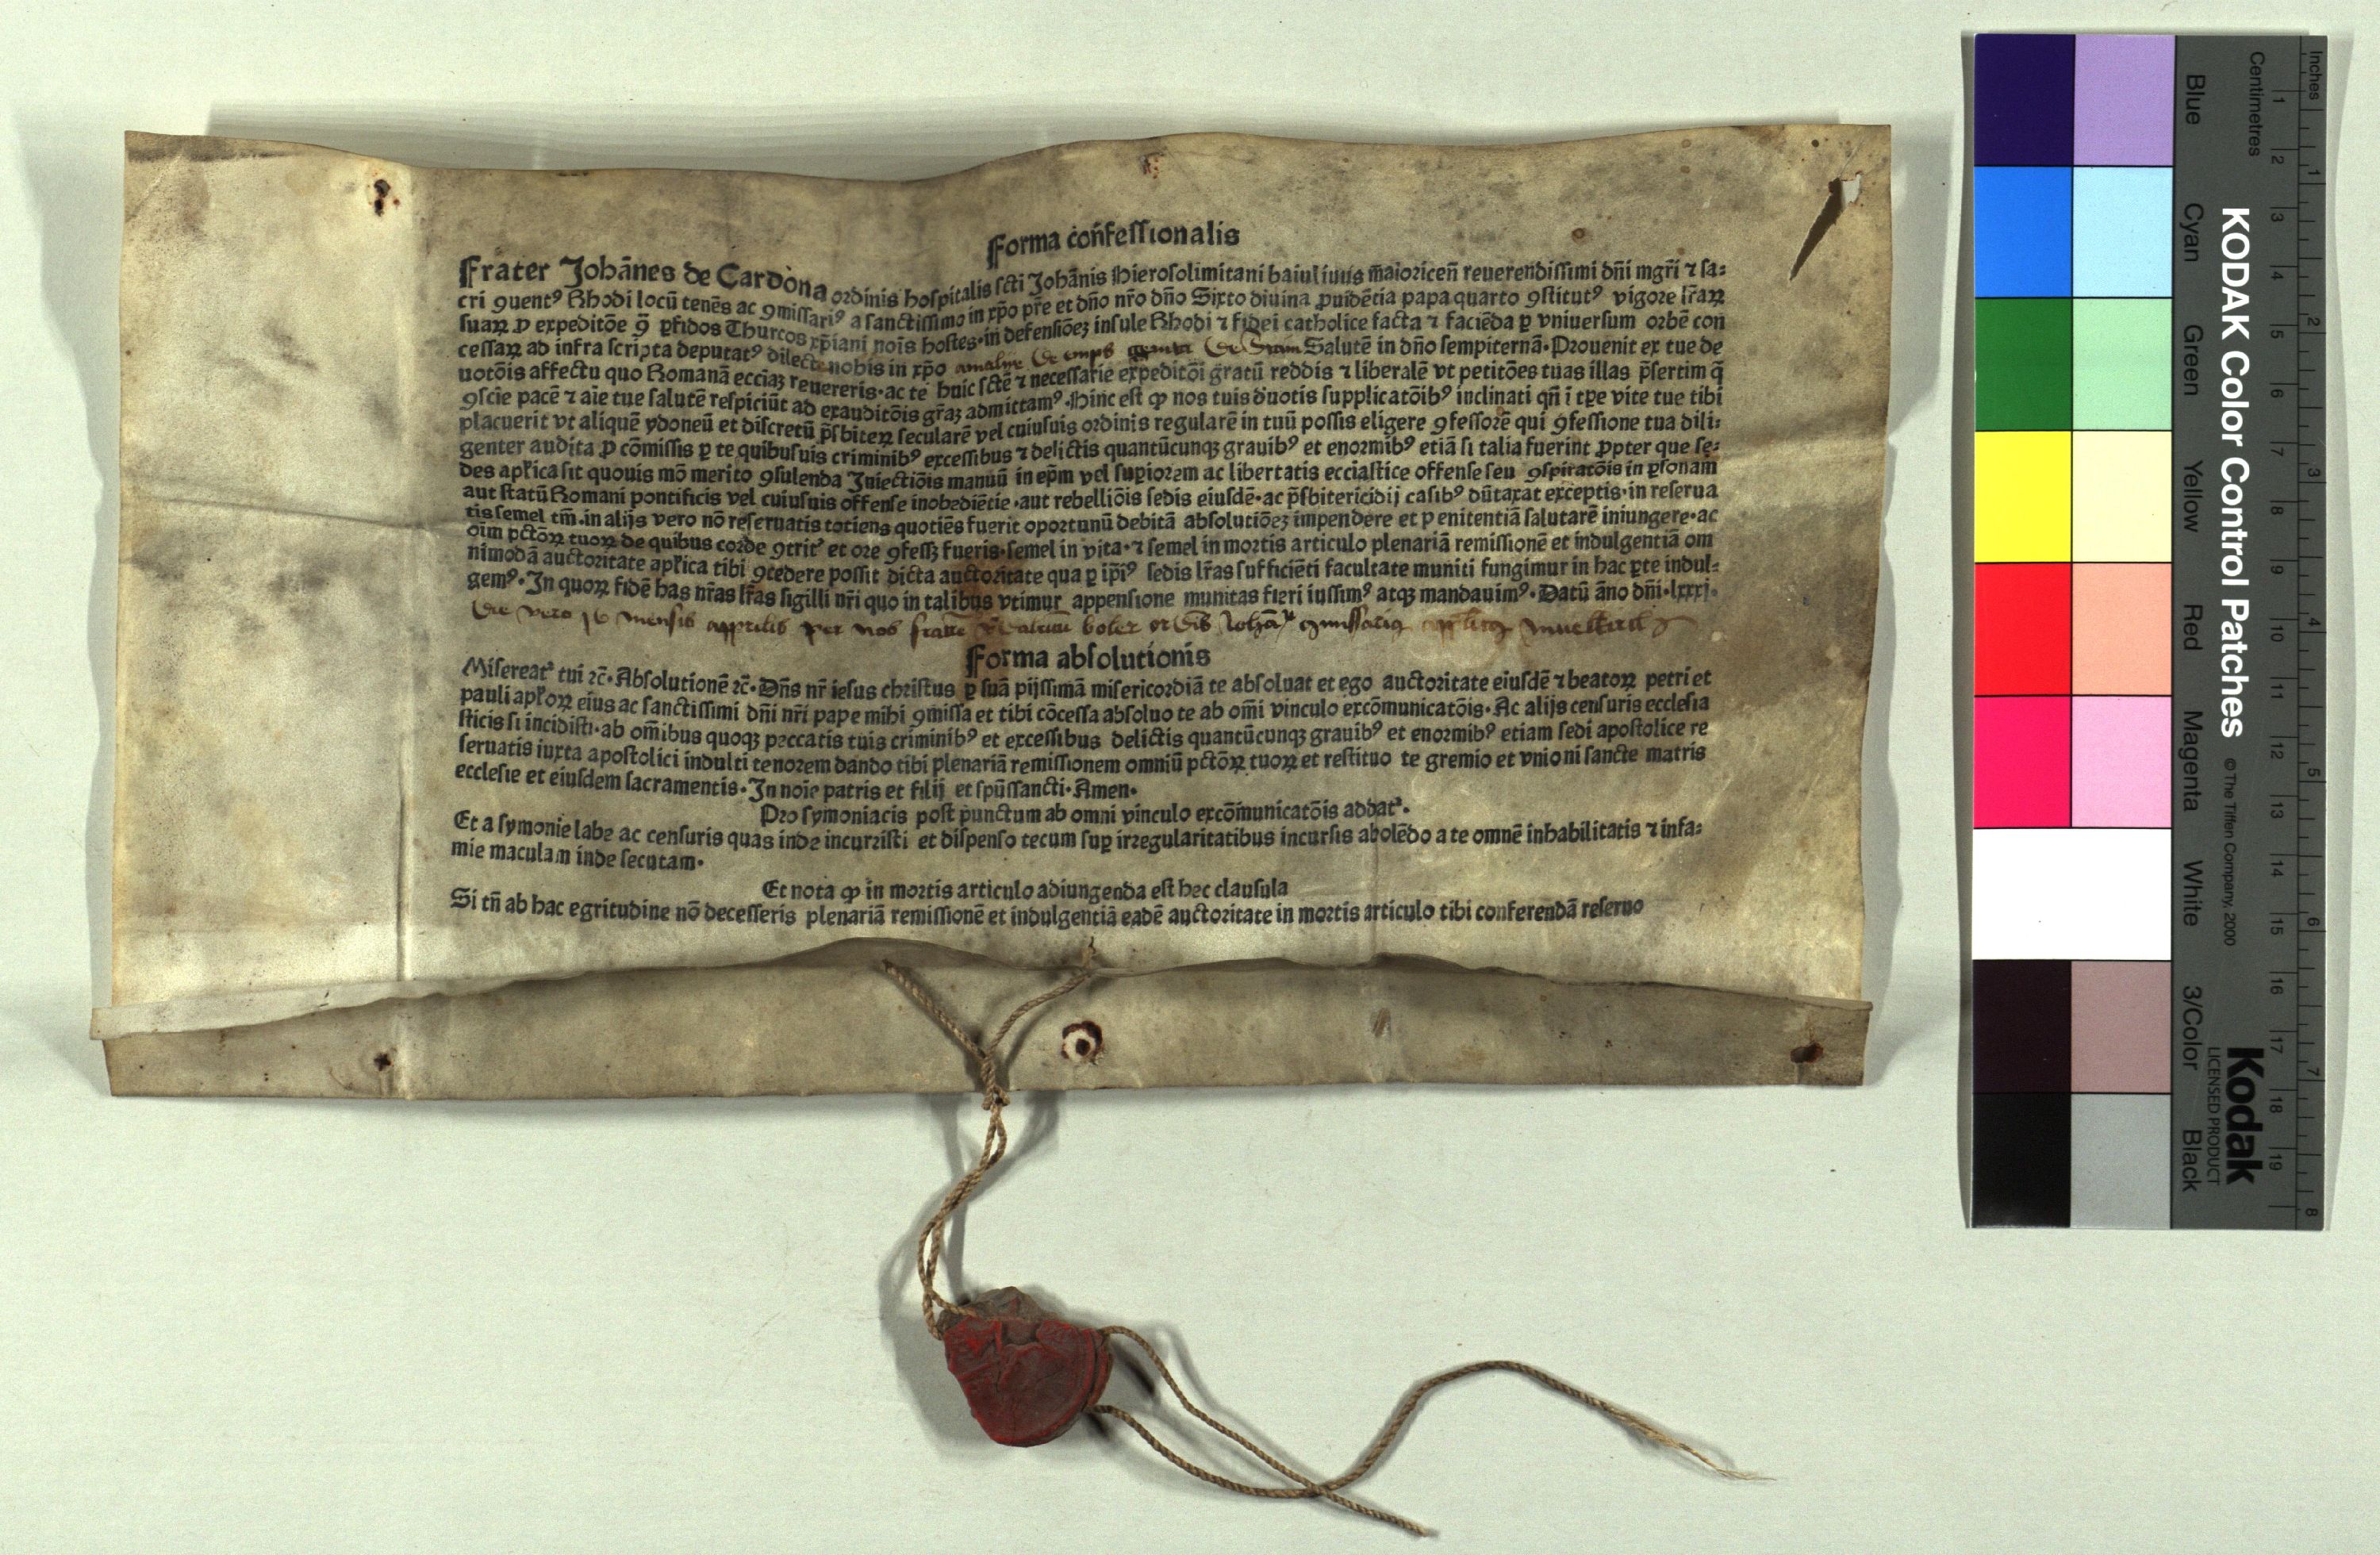 Forma cōnfessionalis
Frater Johānes de Cardona ordinis hospitalis scti Johānis Hierosolimitani baiuliuus maioricen̄ reuerendissimi dn̄i mgr̄i ⁊ sa⸗
cri ꝯuentꝰ Rhodi locū tenēs ac ꝯmissariꝰ a sanctissimo in xp̄o pr̄e et dn̄o nr̄o dn̄o Sixto diuina ꝓuidētia papa quarto ꝯstitutꝰ vigore lr̄aꝝ
suaꝝ ꝓ expeditōe ꝯ̄ ꝑfidos Thurcos xp̄iani nois̄ hostes·in defensiōeꝫ insule Rhodi ⁊ fidei catholice facta ⁊ faciēda ꝑ vniuersum orbē con
cessaꝝ ad infra scripta deputatꝰ dilecte nobis in xp̄o Salutē in dn̄o sempiternā·Prouenit ex tue de
uotōis affectu quo Romanā eccīaꝫ reuereris·ac te huic sctē ⁊ necessarie expeditōi gratū reddis ⁊ liberalē vt petitōes tuas illas p̄sertim q̄
ꝯscīe pacē ⁊ aīe tue salutē respiciūt ad exauditōis gr̄aꝫ admittamꝰ·Hinc est ꝙ nos tuis d̄uotis supplicatōibꝰ inclinati qn̄ ī tꝑe vite tue tibi
placuerit vt aliquē ydoneū et discretū p̄sbiteꝝ secularē vel cuiusuis ordinis regularē in tuū possis eligere ꝯfessorē qui ꝯfessione tua dili⸗
genter audita ꝓ cōmissis ꝑ te quibusuis criminibꝰ excessibus ⁊ delictis quantūcunqꝫ grauibꝰ et enormibꝰ etiā si talia fuerint ꝓpter que se⸗
des apl̄ica sit quouis mō merito ꝯsulenda Iniectiōis manuū in ep̄m vel suꝑiorem ac libertatis eccīastice offense seu ꝯspiratōis in ꝑsonam
aut statū Romani pontificis vel cuiusuis offense inobediētie·aut rebelliōis sedis eiusdē·ac p̄sbitericidij casibꝰ dūtaxat exceptis·in reserua
tis semel tm̄·in alijs vero nō reseruatis totiens quotiēs fuerit oportunū debitā absolutiōeꝫ impendere et penitentiā salutarē iniungere·ac
oīm pctōꝝ tuoꝝ de quibus corde ꝯtritꝰ et ore ꝯfessꝫ fueris·semel in vita·⁊ semel in mortis articulo plenariā remissionē et indulgentiā om
nimodā auctoritate apl̄ica tibi ꝯcedere possit dicta auctoritate qua ꝑ ip̄iꝰ sedis lr̄as sufficiēti facultate muniti fungimur in hac ꝑte indul⸗
gemꝰ·In quoꝝ fidē has nr̄as lr̄as sigilli nr̄i quo in talibus vtimur appensione munitas fieri iussimꝰ atqꝫ mandauimꝰ·Datū āno dn̄i·lxxxj·
Die vero mensis apprilis per nos
Forma absolutionis
Misereatꝰ tui ⁊c̄·Absolutionē ⁊c̄·Dn̄s nr̄ iesus christus ꝑ suā pijssimā misericordiā te absoluat et ego auctoritate eiusdē ⁊ beatoꝝ petri et
pauli apl̄oꝝ eius ac sanctissimi dn̄i nr̄i pape mihi ꝯmissa et tibi cōcessa absoluo te ab om̄i vinculo excōmunicatōis·Ac alijs censuris ecclesia
sticis si incidisti·ab om̄ibus quoqꝫ peccatis tuis criminibꝰ et excessibus delictis quantūcunqꝫ grauibꝰ et enormibꝰ etiam sedi apostolice re
seruatis iuxta apostolici indulti tenorem dando tibi plenariā remissionem omniū pctōꝝ tuoꝝ et restituo te gremio et vnioni sancte matris
ecclesie et eiusdem sacramentis·In noīe patris et filij et spūssancti·Amen·
Pro symoniacis post punctum ab omni vinculo excōmunicatōis addatꝰ·
Et a symonie labe ac censuris quas inde incurristi et dispenso tecum suꝑ irregularitatibus incursis abolēdo a te omnē inhabilitatis ⁊ infa⸗
mie maculam inde secutam·
Et nota ꝙ in mortis articulo adiungenda est hec clausula
Si tn̄ ab hac egritudine nō decesseris plenariā remissionē et indulgentiā eadē auctoritate in mortis articulo tibi conferendā reseruo
Inches
Centimetres
1 2 3 4 5 6 7 8 9 10 11 12 13 14 15 16 17 18 19
1 2 3 4 5 6 7 8
Blue Cyan Green Yellow Red Magenta White 3/Color Black
KODAK Color Control Patches
© The Tiffen Company, 2000
Kodak
LICENSED PRODUCT